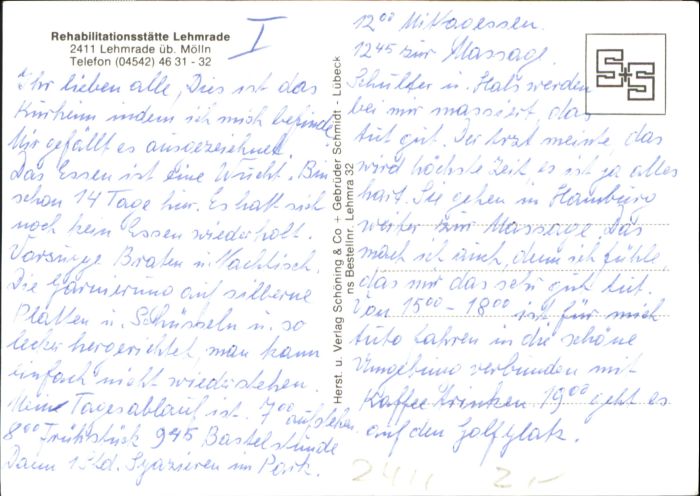 Rehabilitationsstätte Lehmrade
2411 Lehmrade üb. Mölln
Telefon (04542) 46 31 - 32
I
Ihr lieben alle, Dies ist das
Kurheim indem ich mich befinde
Mir gefällt es ausgezeichnet.
Das Essen ist eine Wucht. Bin
schon 14 Tage hier. Es hat sich
noch kein Essen wiederholt.
Vorsuppe Braten u. Nachtisch.
Die Garnierung auf silberne
Platten u. Schüsseln u. so
lecker hergerichtet, man kann
einfach nicht wiederstehen.
Meine Tagesablauf ist. 7 00 aufstehen
8 00 Frühstück 9 45 Bastelstunde
Dann 1 Std. Spazieren im Park.
Herst. u. Verlag Schöning & Co - Gebrüder Schmidt - Lübeck
ns Bestellnr. Lehmra 32
12 00 Mittagessen.
12 45 zur Massage.
Schulter u. Hals werden
bei mir massiert, das
tut gut. Der Arzt meinte das
wird höchste Zeit, es ist ja alles
hart. Sie gehen in Hamburg
weiter zur Massage. Das
mach ich auch, denn ich fühle
das mir das sehr gut tut.
Von 15 00 - 18 00 ist für mich
Auto fahren in die schöne
Umgebung verbunden mit
Kaffee trinken 19 00 geht es
auf den Golfplatz.
S+S
2411 2,-